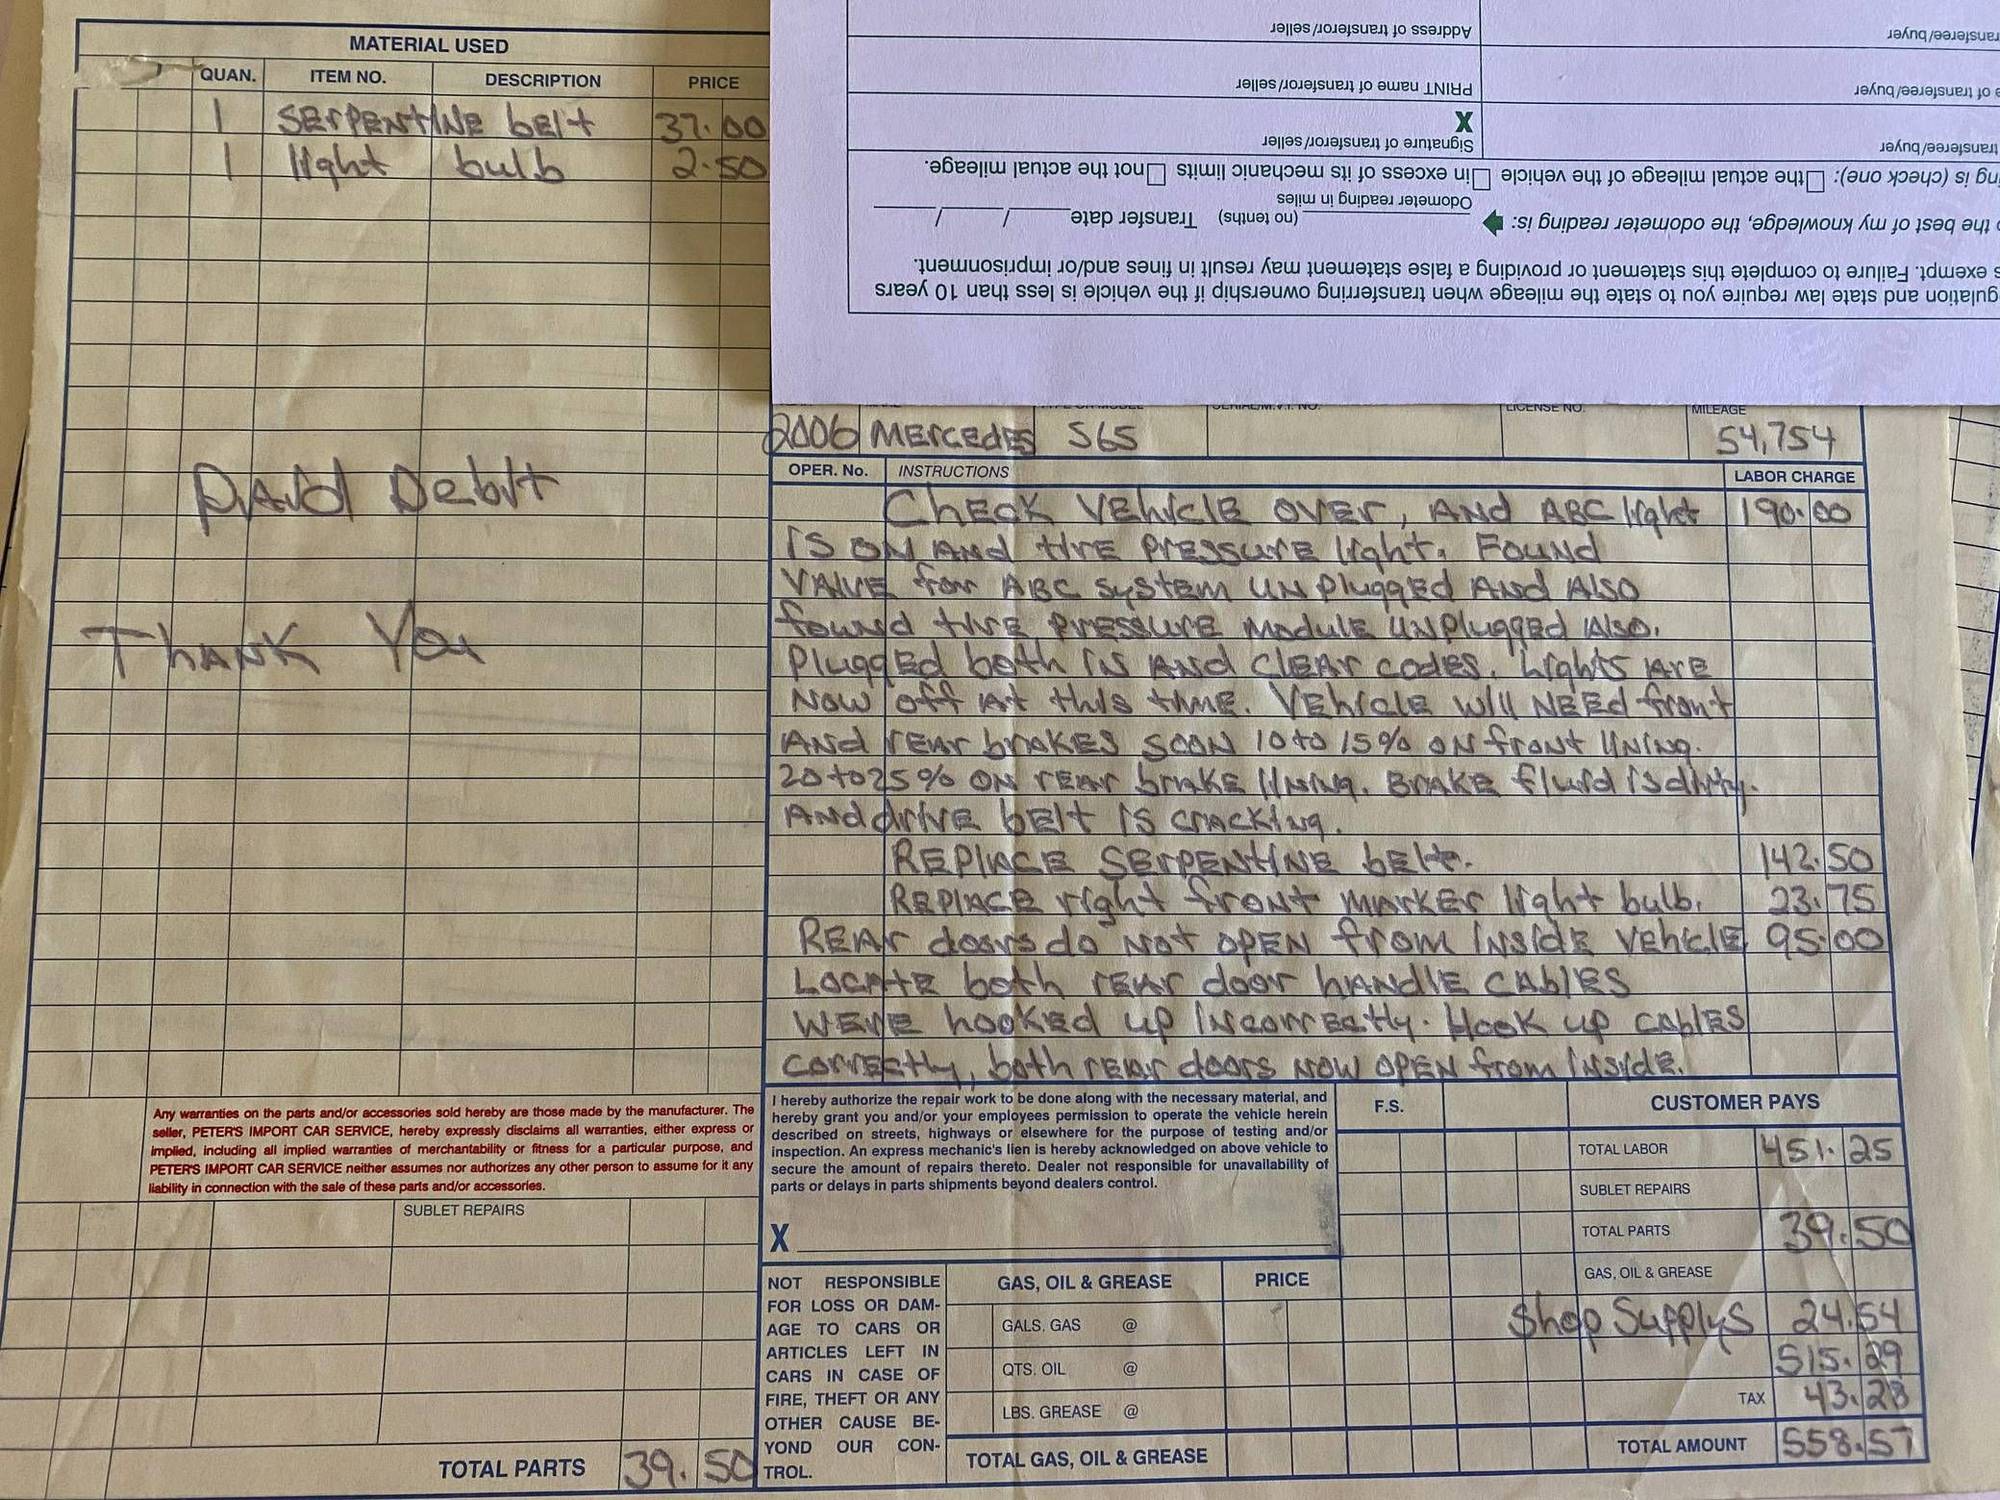 MATERIAL USED
QUAN. ITEM NO. DESCRIPTION PRICE
1 SERPENTINE belt 37.00
1 light bulb 2.50
PAId Debit
THANK You
Any warranties on the parts and/or accessories sold hereby are those made by the manufacturer. The
seller, PETER'S IMPORT CAR SERVICE, hereby expressly disclaims all warranties, either express or
implied, including all implied warranties of merchantability or fitness for a particular purpose, and
PETER'S IMPORT CAR SERVICE neither assumes nor authorizes any other person to assume for it any
liability in connection with the sale of these parts and/or accessories.
SUBLET REPAIRS
TOTAL PARTS 39.50
gulation and state law require you to state the mileage when transferring ownership if the vehicle is less than 10 years
s exempt. Failure to complete this statement or providing a false statement may result in fines and/or imprisonment.
the best of my knowledge, the odometer reading is: (no tenths) Transfer date / /
Odometer reading in miles
ng is (check one): the actual mileage of the vehicle in excess of its mechanic limits not the actual mileage.
transferee/buyer Signature of transferor/seller
X
e of transferee/buyer PRINT name of transferor/seller
ransferee/buyer Address of transferor/seller
SERIAL/M.V.I. NO. LICENSE NO. MILEAGE
2006 MERCEdES S65 54,754
OPER. No. INSTRUCTIONS LABOR CHARGE
ChECK VEhIClE OVER, AND ABC light 190.00
IS ON AND tIrE PrESSURE light. FOUND
VALVE for ABC SYSTEM UNPluggEd AND Also
found tIrE PrESSURE MODULE UNPluggEd Also.
PluggEd both IN AND CLEAR COdES. Lights ArE
NOW off At this time. VEhIClE will NEED front
ANd rEAr brAKES SOON 10 to 15% ON front lINING.
20 to 25% ON rEAr brAKE lINING. BrAKE fluid is dirty.
ANd drIVE bElt is crACKING.
REPlACE SErPENtINE bElt. 142.50
REPlACE right front MArKEr light bulb. 23.75
REAr doors do NOt OPEN from INSIdE VEhIClE 95.00
LOCAtE both rEAr door hANdlE CAblES
WErE hooKEd up INCOrrECtly. HooK up CAblES
COrrECtly, both rEAr doors NOW OPEN from INSIdE.
I hereby authorize the repair work to be done along with the necessary material, and
hereby grant you and/or your employees permission to operate the vehicle herein
described on streets, highways or elsewhere for the purpose of testing and/or
inspection. An express mechanic's lien is hereby acknowledged on above vehicle to
secure the amount of repairs thereto. Dealer not responsible for unavailability of
parts or delays in parts shipments beyond dealers control.
X
NOT RESPONSIBLE
FOR LOSS OR DAM-
AGE TO CARS OR
ARTICLES LEFT IN
CARS IN CASE OF
FIRE, THEFT OR ANY
OTHER CAUSE BE-
YOND OUR CON-
TROL.
GAS, OIL & GREASE PRICE
GALS. GAS @
QTS. OIL @
LBS. GREASE @
TOTAL GAS, OIL & GREASE
F.S. CUSTOMER PAYS
TOTAL LABOR 451.25
SUBLET REPAIRS
TOTAL PARTS 39.50
GAS, OIL & GREASE
Shop Supplys 24.54
515.29
TAX 43.28
TOTAL AMOUNT 558.57